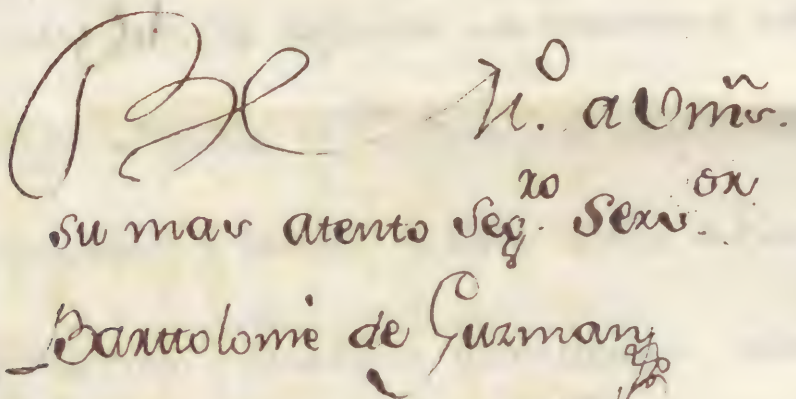 Bl N.º a Vm̃s.
su mas atento Seg.ro Serv.or
Barttolome de Guzman